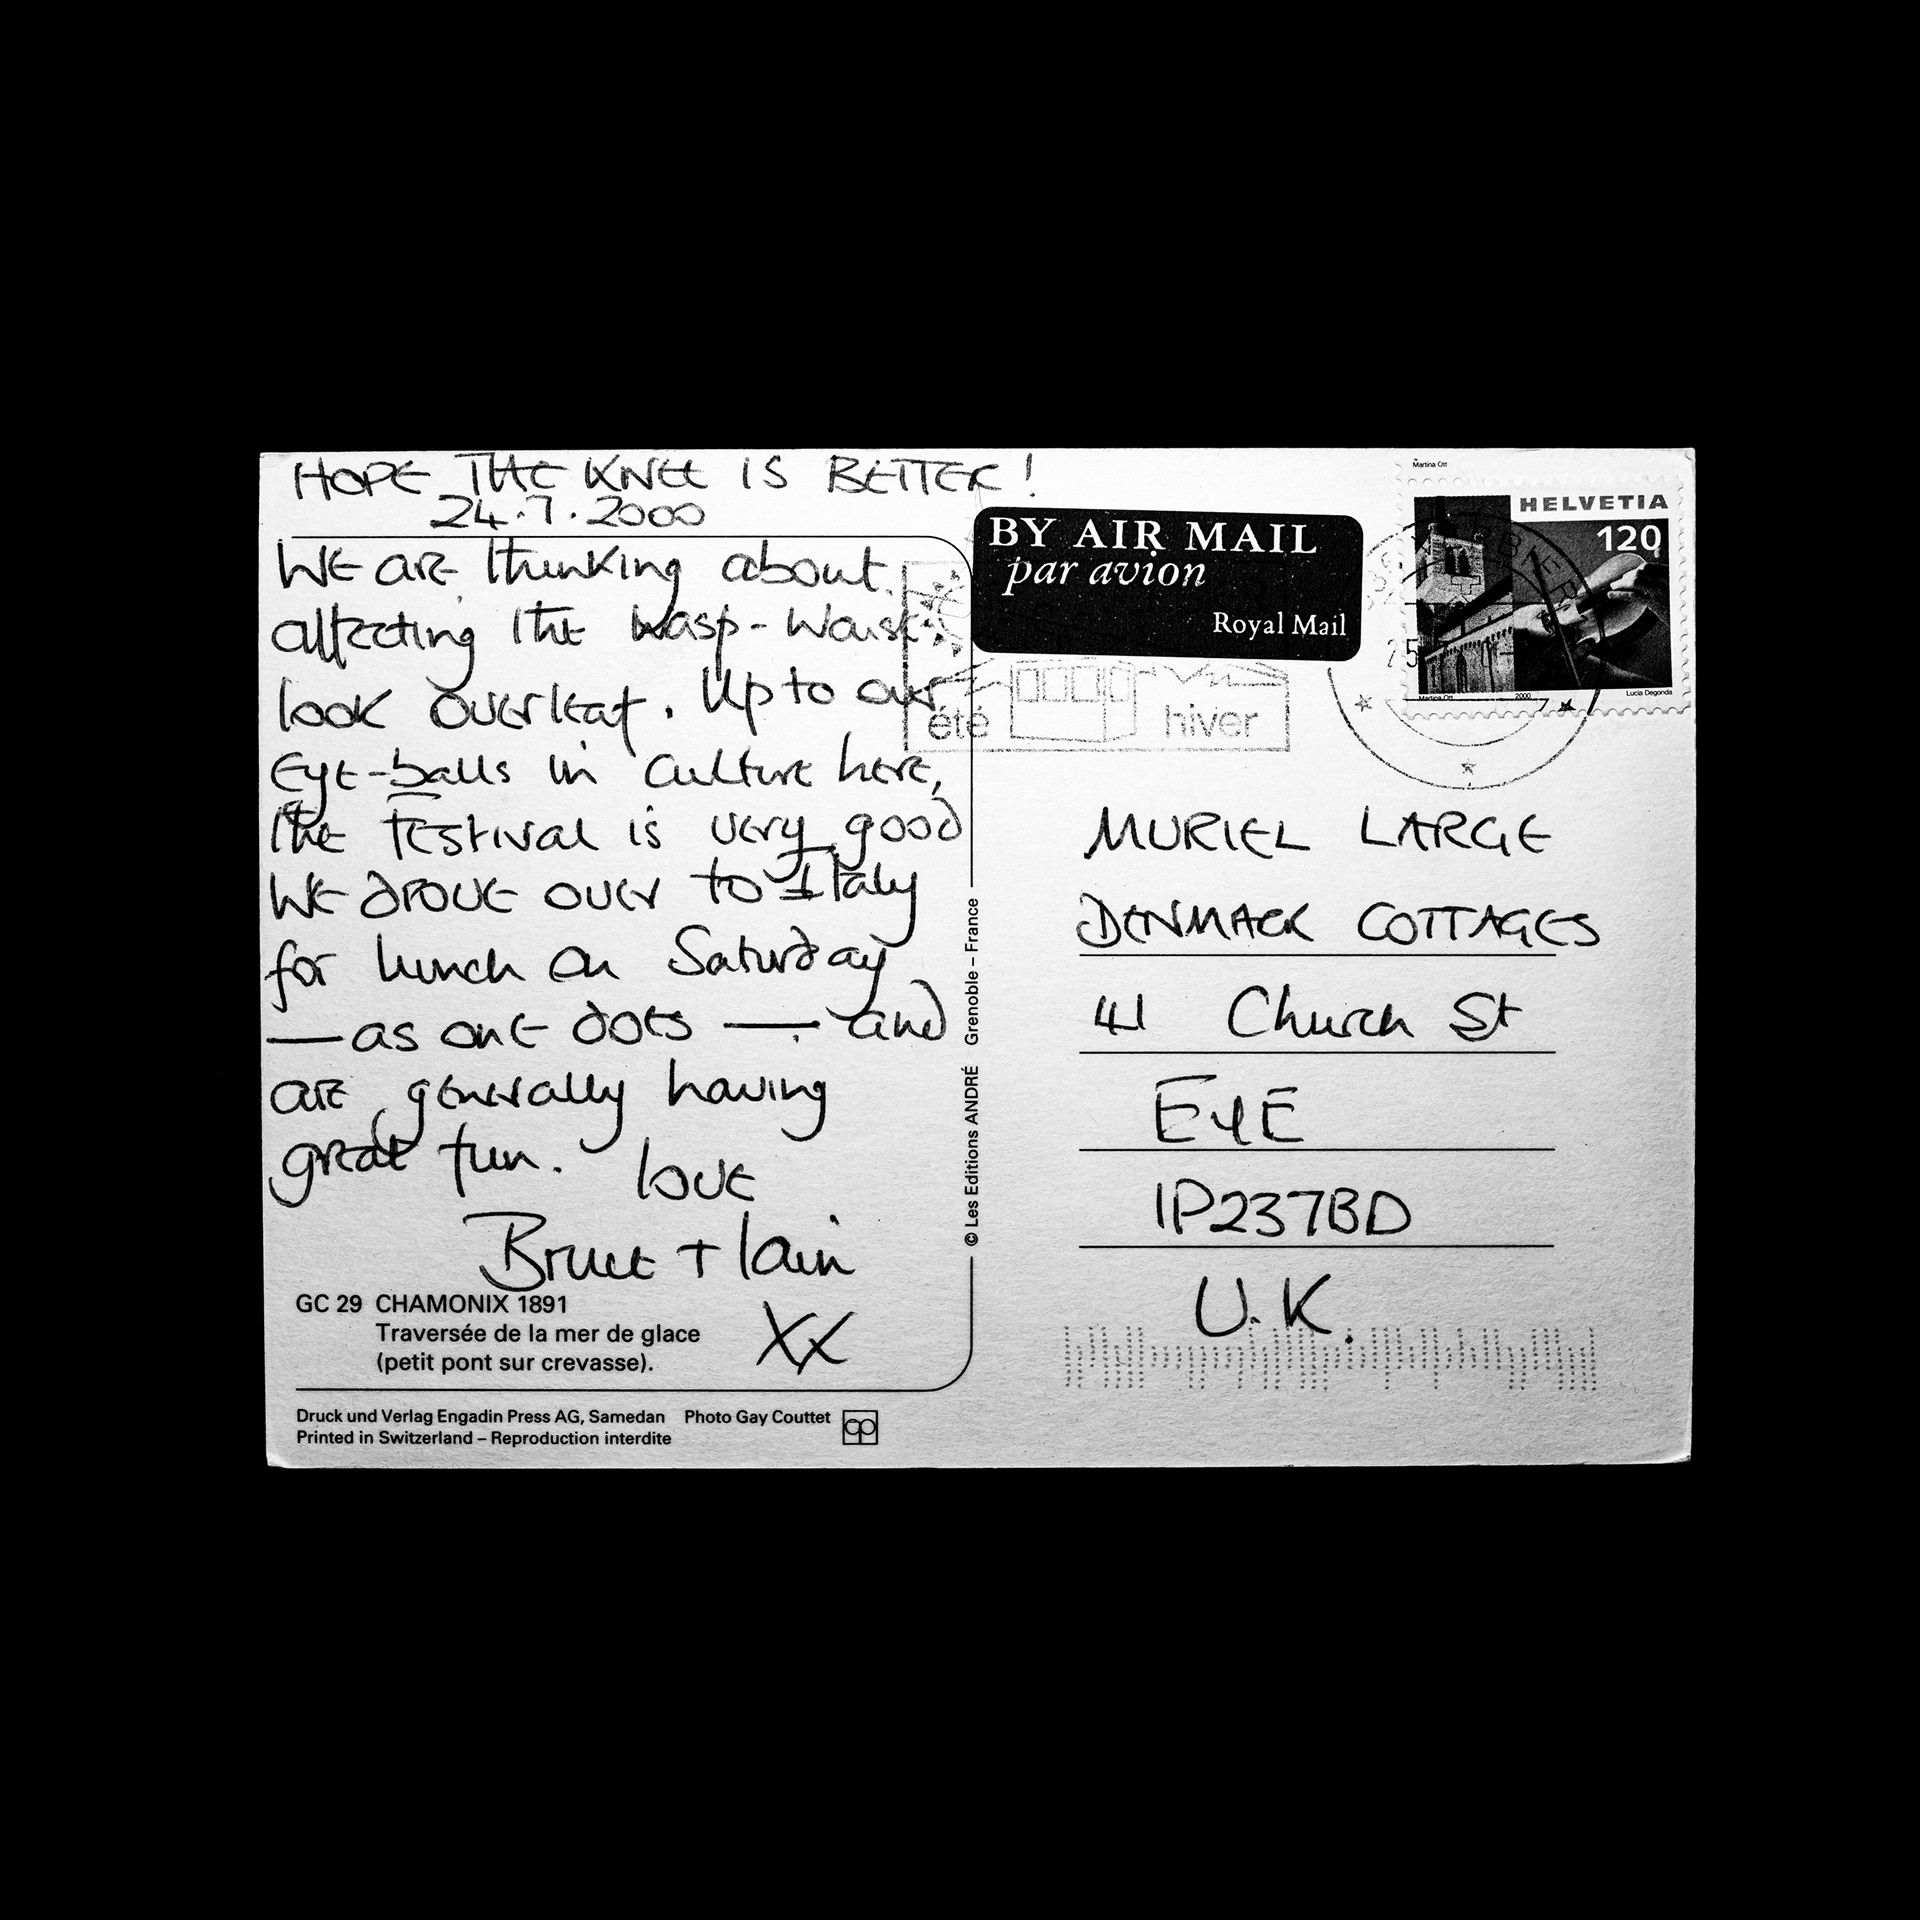 HOPE THE KNEE IS BETTER!
24.7.2000
We are thinking about
affecting the wasp-waist:
look overleaf. Up to our
Eye-balls in Culture here,
the festival is very good
We drove over to Italy
for lunch on Saturday
— as one does — and
are generally having
great fun. love
Bruce + Iain
XX
GC 29 CHAMONIX 1891
Traversée de la mer de glace
(petit pont sur crevasse).
Druck und Verlag Engadin Press AG, Samedan Photo Gay Couttet
Printed in Switzerland – Reproduction interdite
cp
© Les Editions ANDRÉ Grenoble – France
BY AIR MAIL
par avion
Royal Mail
été hiver
Martina Ott
HELVETIA
120
VERBIER
25
Martina Ott 2000 Lucia Degonda
MURIEL LARGE
DENMARK COTTAGES
41 Church St
EYE
IP237BD
U.K.